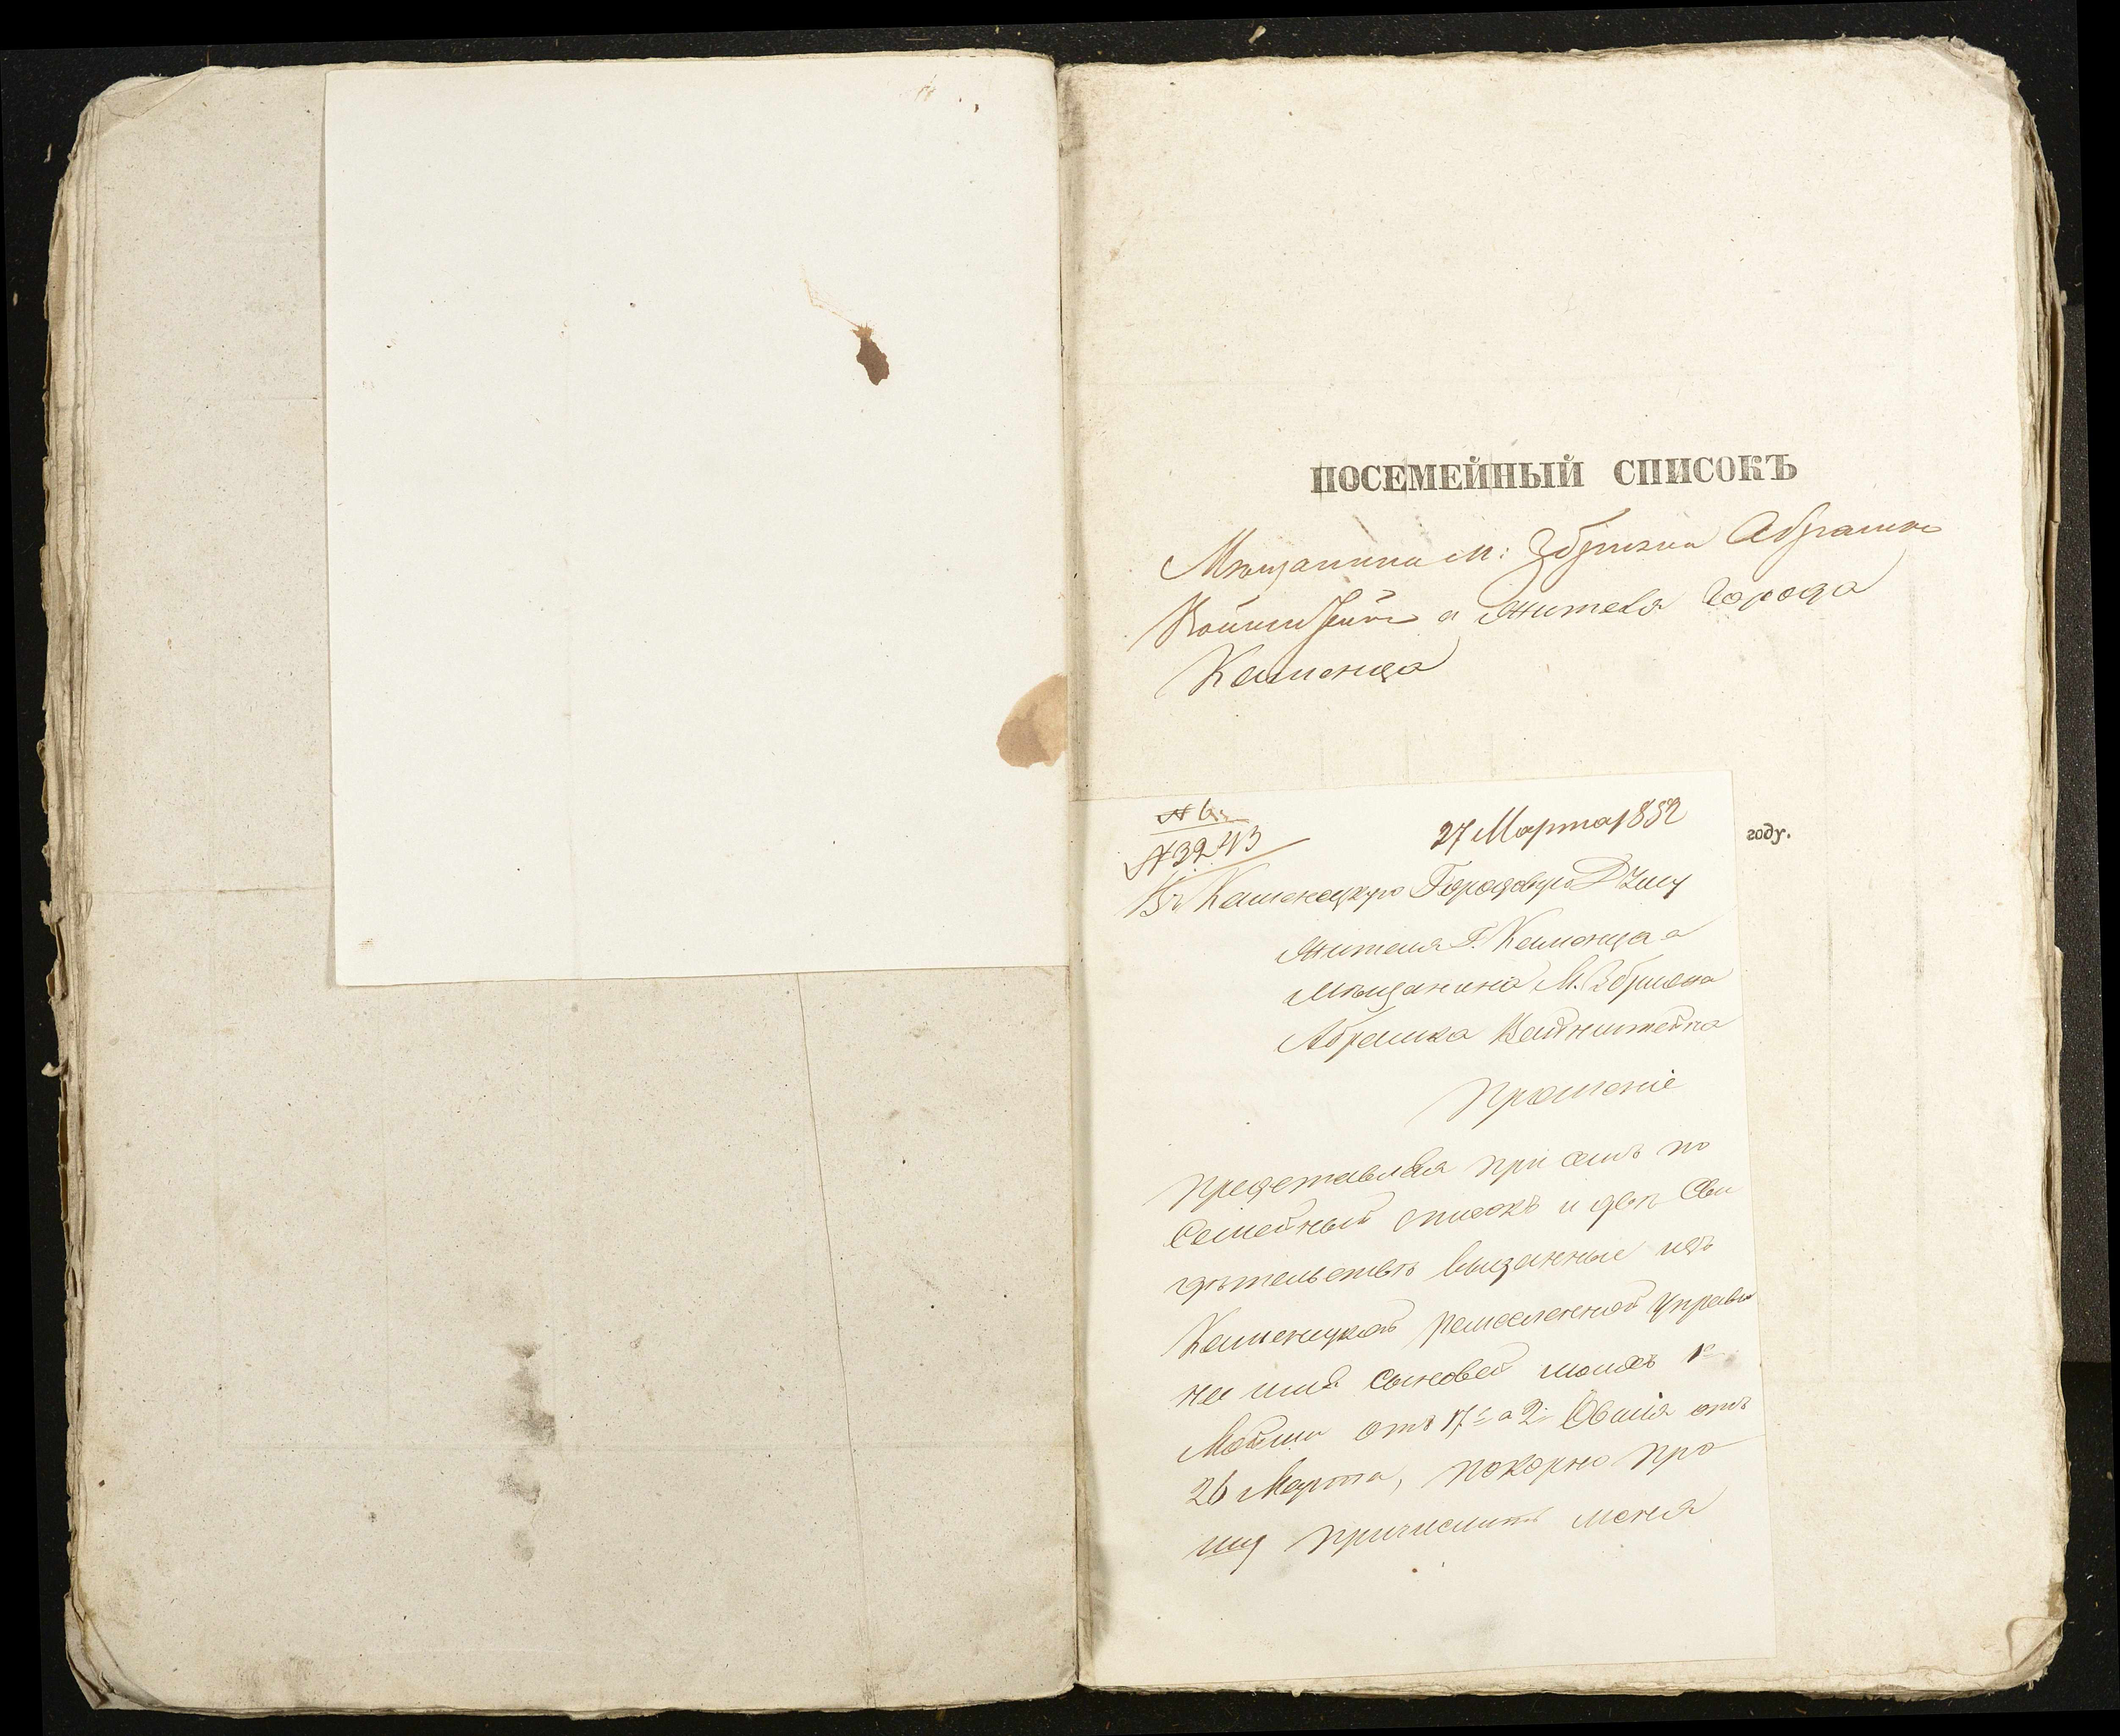 ПОСЕМЕЙНЫЙ СПИСОКЪ
Мѣщанина м: Збризна Абрашка
Вайнштейна а жителя Города
Каменца
году.
№ 6.
№ 3243
27 Марта 1852
Въ Каменецкую Городовую Думу
Жителя Г. Каменца а
мѣщанина М. Збризна
Абрашка Вайнштейна
Прошеніе
Представляя при семъ по
семейный списокъ и два Сви
дѣтельствъ выданные изъ
Каменецкой ремесленной управы
на имя сыновей моихъ 1е
Мойши отъ 17 а 2: Овшія отъ
26 Марта, покорно про
шу причислить меня